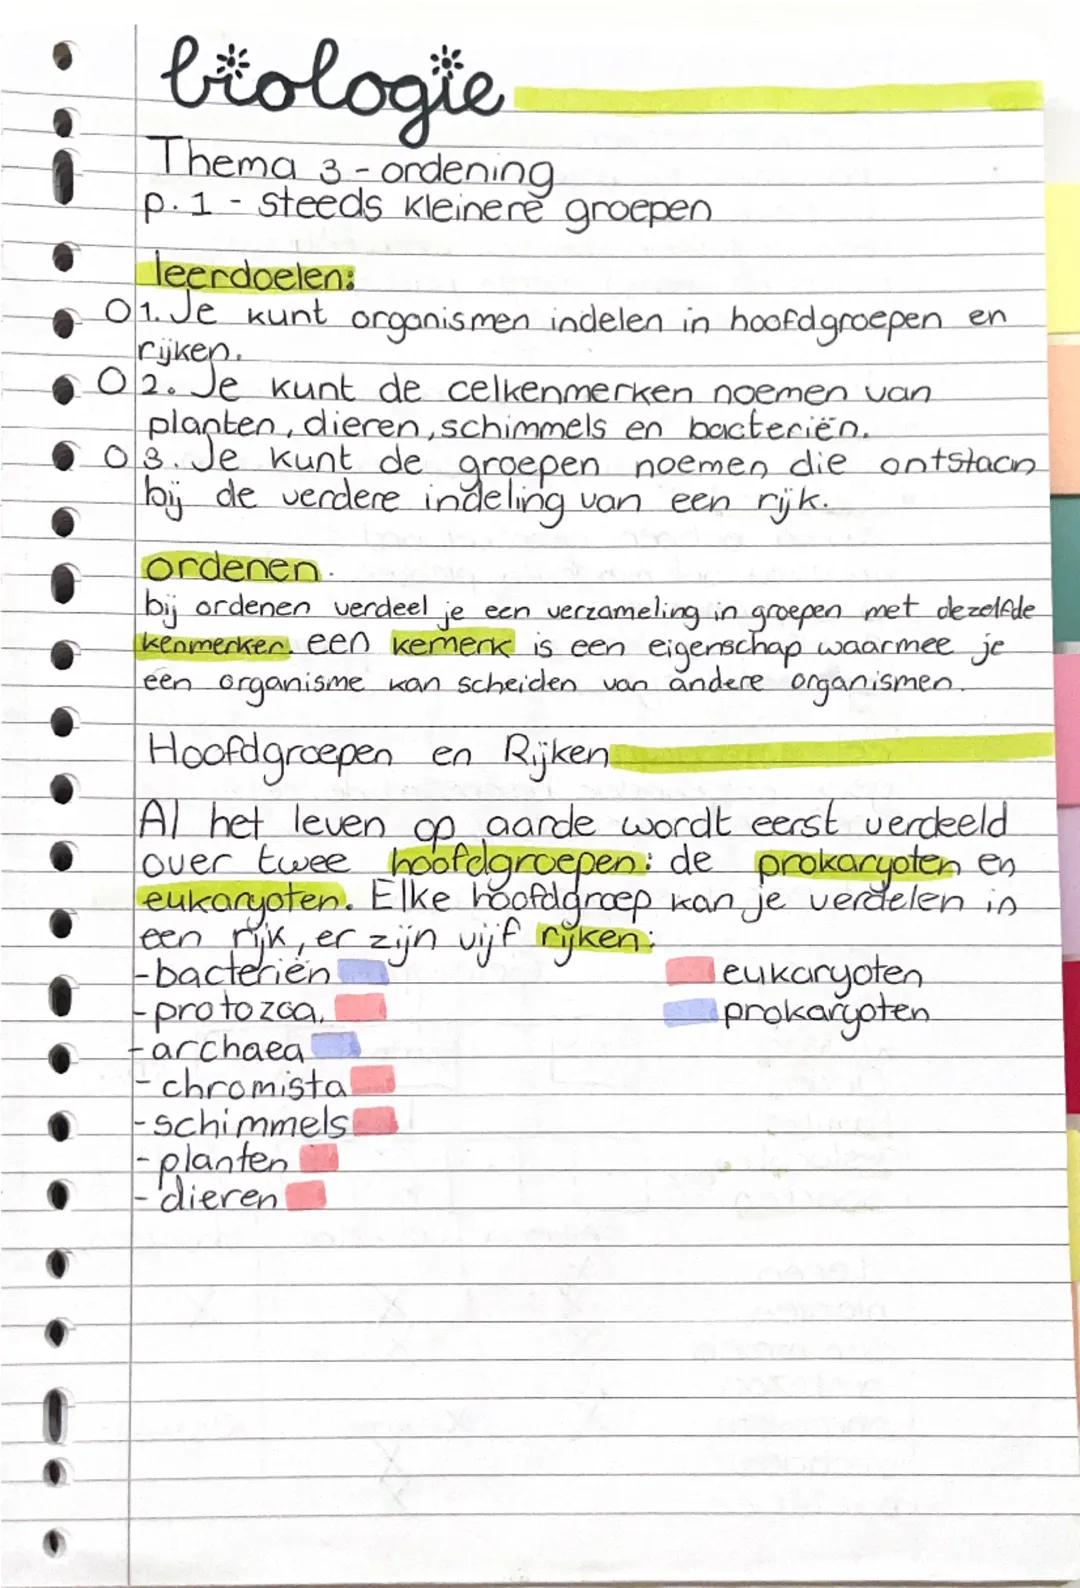 biologie
Thema 3 - ordening
p. 1 - steeds kleinere groepen
leerdoelen:
O 1. Je kunt organismen indelen in hoofdgroepen en
rijken.
O 2. Je kunt de celkenmerken noemen van
planten, dieren, schimmels en bacteriën.
O 3. Je kunt de groepen noemen die ontstaan
bij de verdere indeling van een rijk.
ordenen.
bij ordenen verdeel je een verzameling in groepen met dezelfde
kenmerken. een kemerk is een eigenschap waarmee je
een organisme kan scheiden van andere organismen.
Hoofdgroepen en Rijken
Al het leven op aarde wordt eerst verdeeld
over twee hoofdgroepen: de prokaryoten en
eukaryoten. Elke hoofdgroep kan je verdelen in
een rijk, er zijn vijf rijken:
- bacteriën
eukaryoten
- protozoa.
prokaryoten
- archaea
- chromista
- schimmels
- planten
- dieren